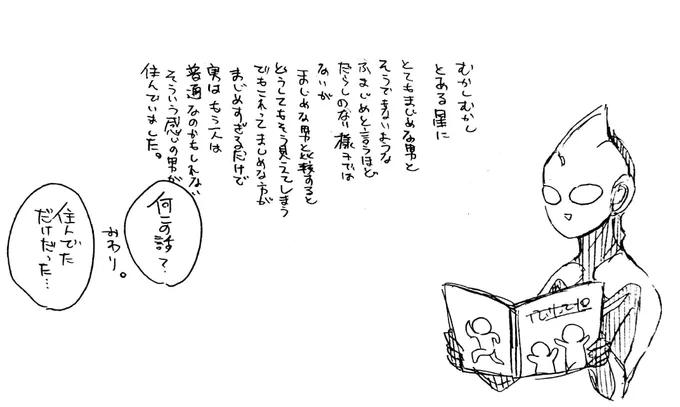 むかしむかし
とある星に
とてもまじめな男と
そうでもないような
ふまじめと言うほど
だらしのない様子では
ないが
まじめな男と比較すると
どうしてもそう見えてしまう
でもこれってまじめな方が
まじめすぎるだけで
実はもう一人は
普通なのかもしれない
そういう感じの男が
住んでいました。
何この話？
おわり。
住んでた
だけだった…